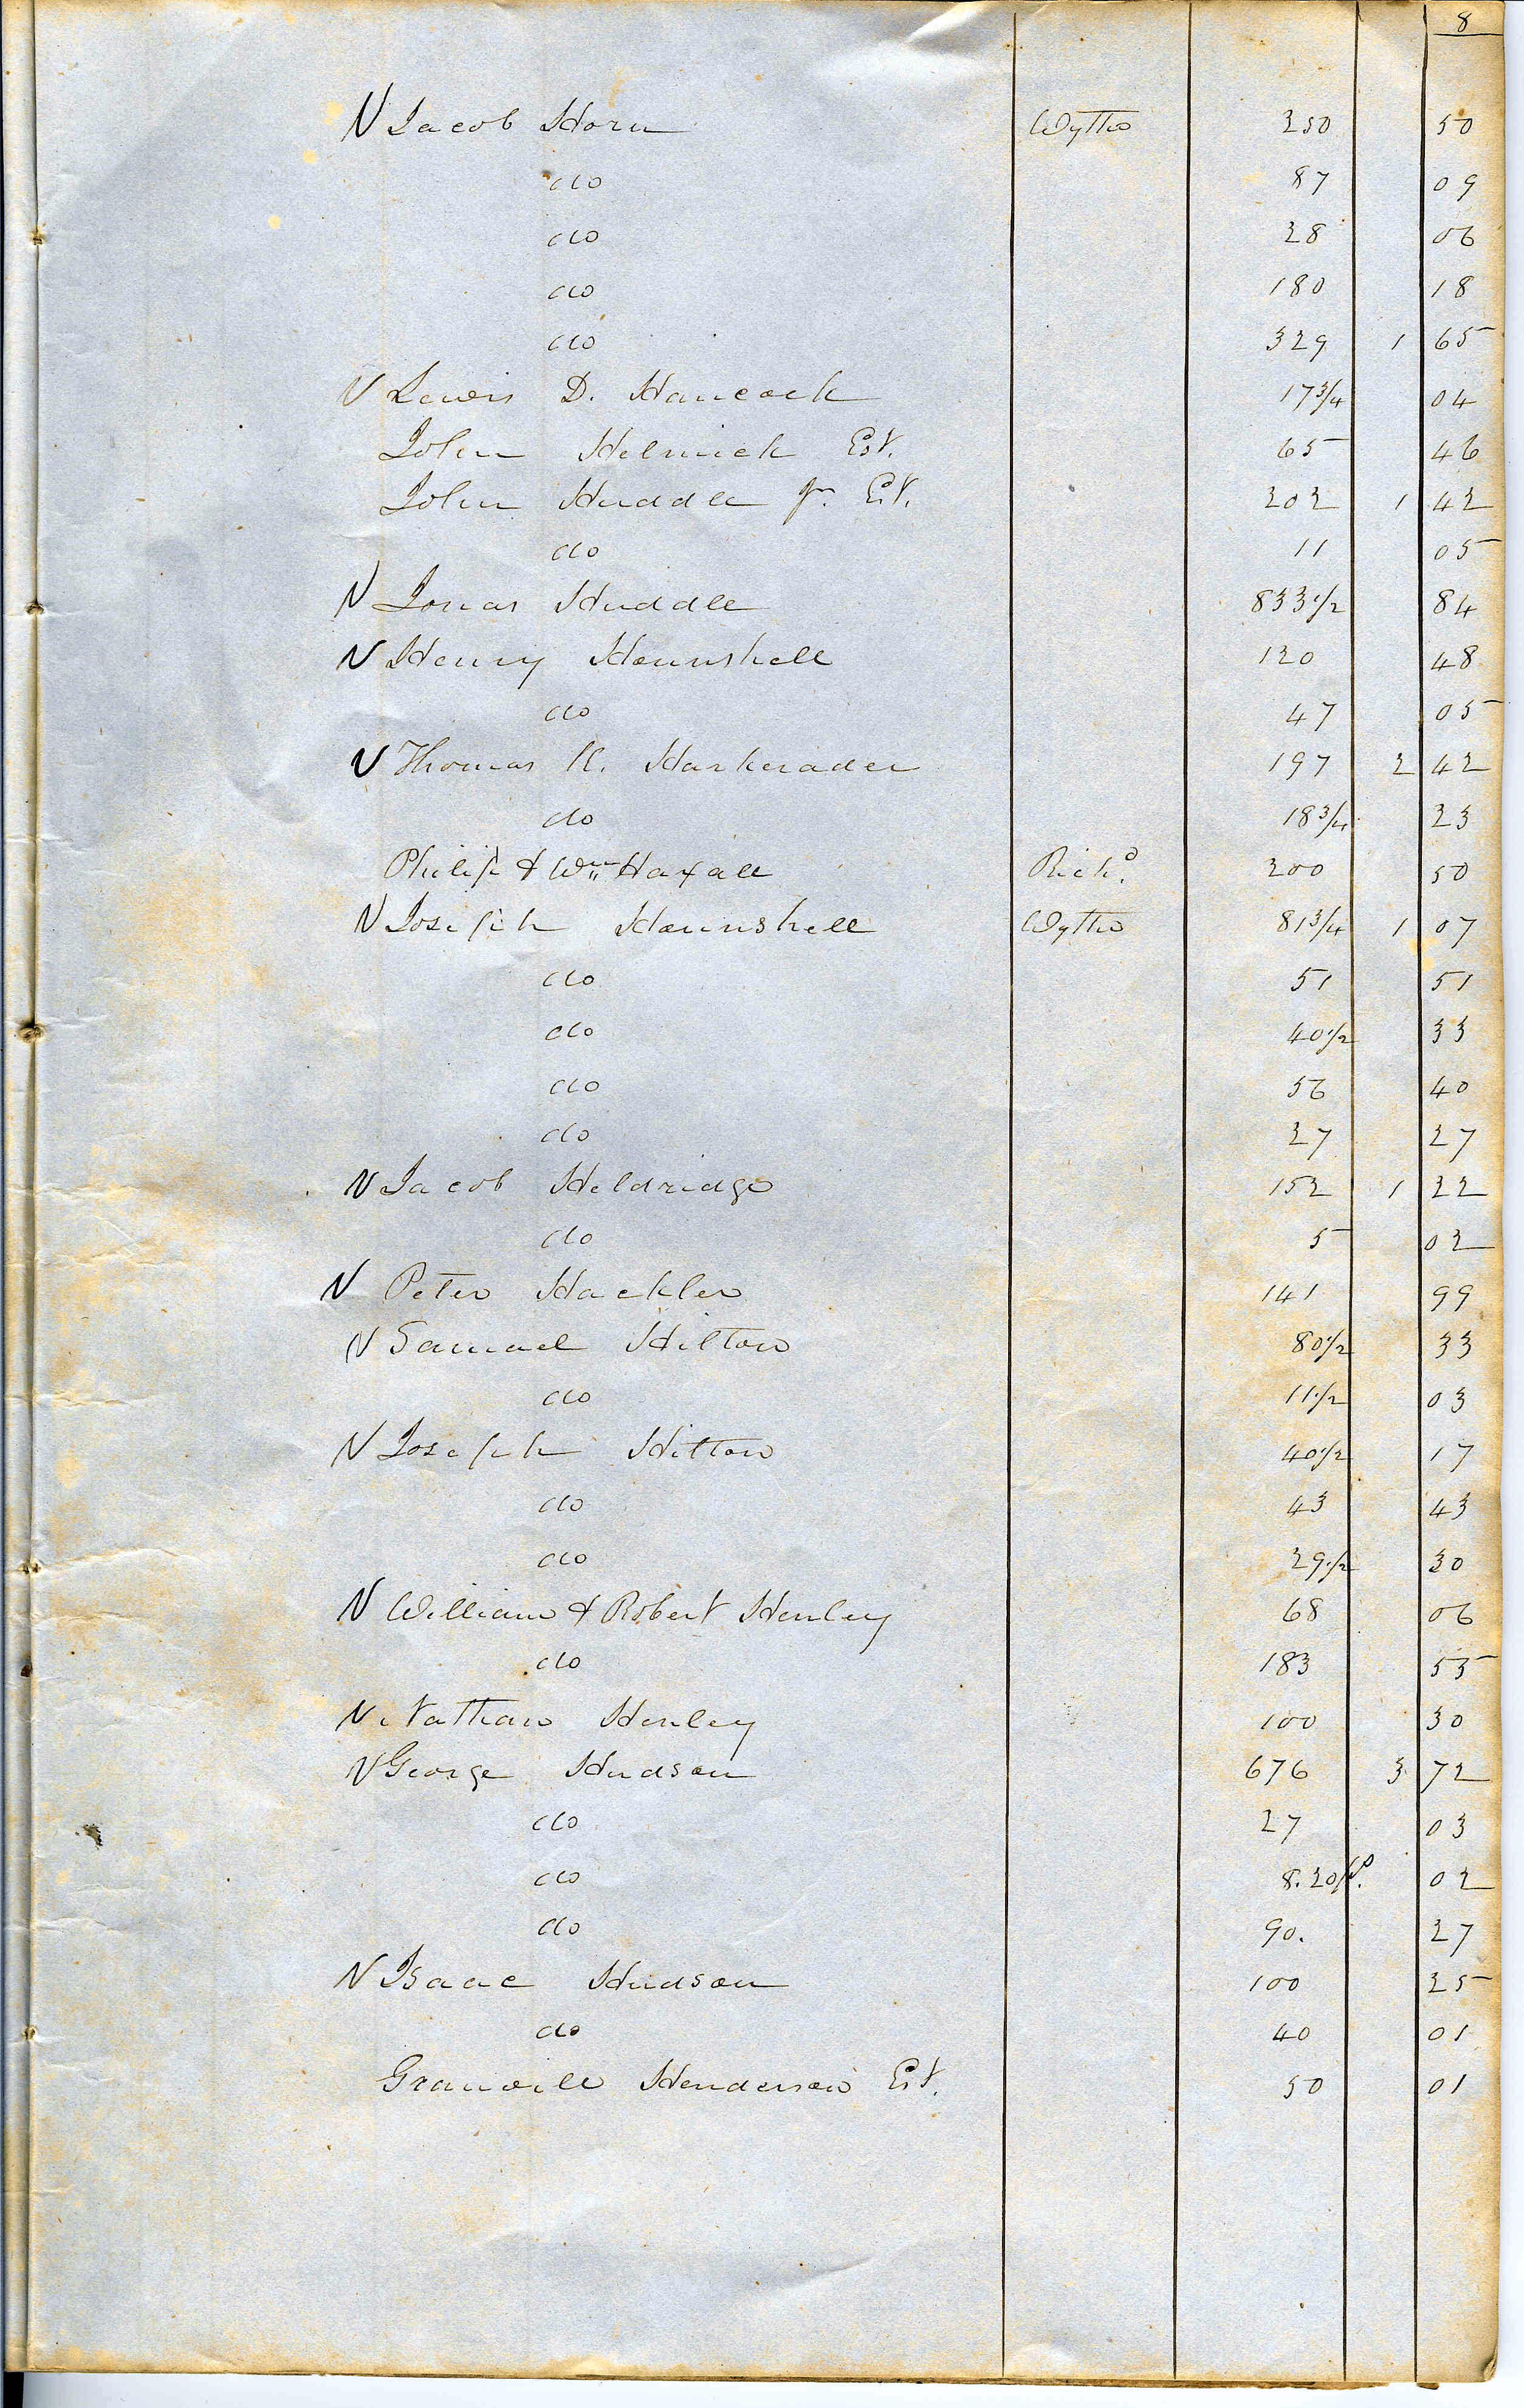 8
√ Jacob Horn Wythe 250 50
do 87 09
do 28 06
do 180 18
do 329 1 65
√ Lewis D. Hancock 17 3/4 04
John Helmick Est. 65 46
John Huddle Jr. Est. 202 1 42
do 11 05
√ Jonas Huddle 833 1/2 84
√ Henry Hounshell 120 48
do 47 05
√ Thomas K. Harkrader 197 2 42
do 18 3/4 23
Philip & Wm Haxall Richd. 200 50
√ Joseph Hounshell Wythe 81 3/4 1 07
do 51 51
do 40 1/2 33
do 56 40
do 27 27
√ Jacob Heldridge 152 1 22
do 5 02
√ Peter Hackler 141 99
√ Samuel Hilton 80 1/2 33
do 11 1/2 03
√ Joseph Hilton 40 1/2 17
do 43 43
do 29 1/2 30
√ William & Robert Henley 68 06
do 183 55
√ Nathan Henley 100 30
√ George Hudson 676 3 72
do 27 03
do 8.20 P. 02
do 90. 27
√ Isaac Hudson 100 25
do 40 01
Granville Henderson Est. 50 01